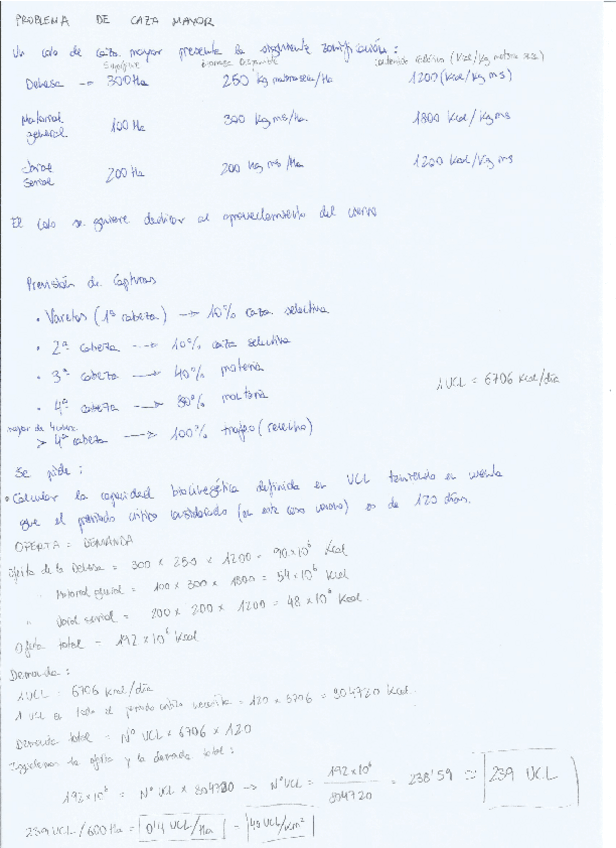 PROBLEMA DE CAZA MAYOR
Un coto de caza mayor presenta la siguiente zonificación:
Superficie Biomasa disponible contenido calórico (Kcal/kg materia seca)
Dehesa → 300 Ha 250 Kg materia seca/Ha 1200 (Kcal/kg ms)
Matorral general 100 Ha 300 Kg ms/Ha 1800 Kcal/Kg ms
Jaral serial 200 Ha 200 kg ms/Ha 1200 Kcal/Kg ms
El coto se quiere dedicar al aprovechamiento del ciervo
Previsión de Capturas
• Varetos (1ª cabeza) → 10% caza selectiva
• 2ª cabeza → 10% caza selectiva
• 3ª cabeza → 40% montería
1 UCL = 6706 Kcal/día
• 4ª cabeza → 80% montería
mayor de 4
> 4ª cabeza → 100% trofeo (rececho)
Se pide:
• Calcular la capacidad biocinegética definida en UCL teniendo en cuenta
que el período crítico considerado (en este caso verano) es de 120 días.
OFERTA = DEMANDA
Oferta de la Dehesa = 300 x 250 x 1200 = 90x10⁶ Kcal
" Matorral general = 100 x 300 x 1800 = 54x10⁶ Kcal
" Jaral serial = 200 x 200 x 1200 = 48x10⁶ Kcal.
Oferta total = 192 x 10⁶ Kcal
Demanda:
1 UCL = 6706 Kcal/día
1 UCL en todo el período crítico necesita = 120 x 6706 = 804720 Kcal.
Demanda total = Nº UCL x 6706 x 120
Igualamos la oferta y la demanda total:
192x10⁶ = Nº UCL x 804720 → Nº UCL = 192 x 10⁶ / 804720 = 238'59 ≈ 239 UCL
239 UCL/600 Ha = 0'4 UCL/Ha - 40 UCL/Km²